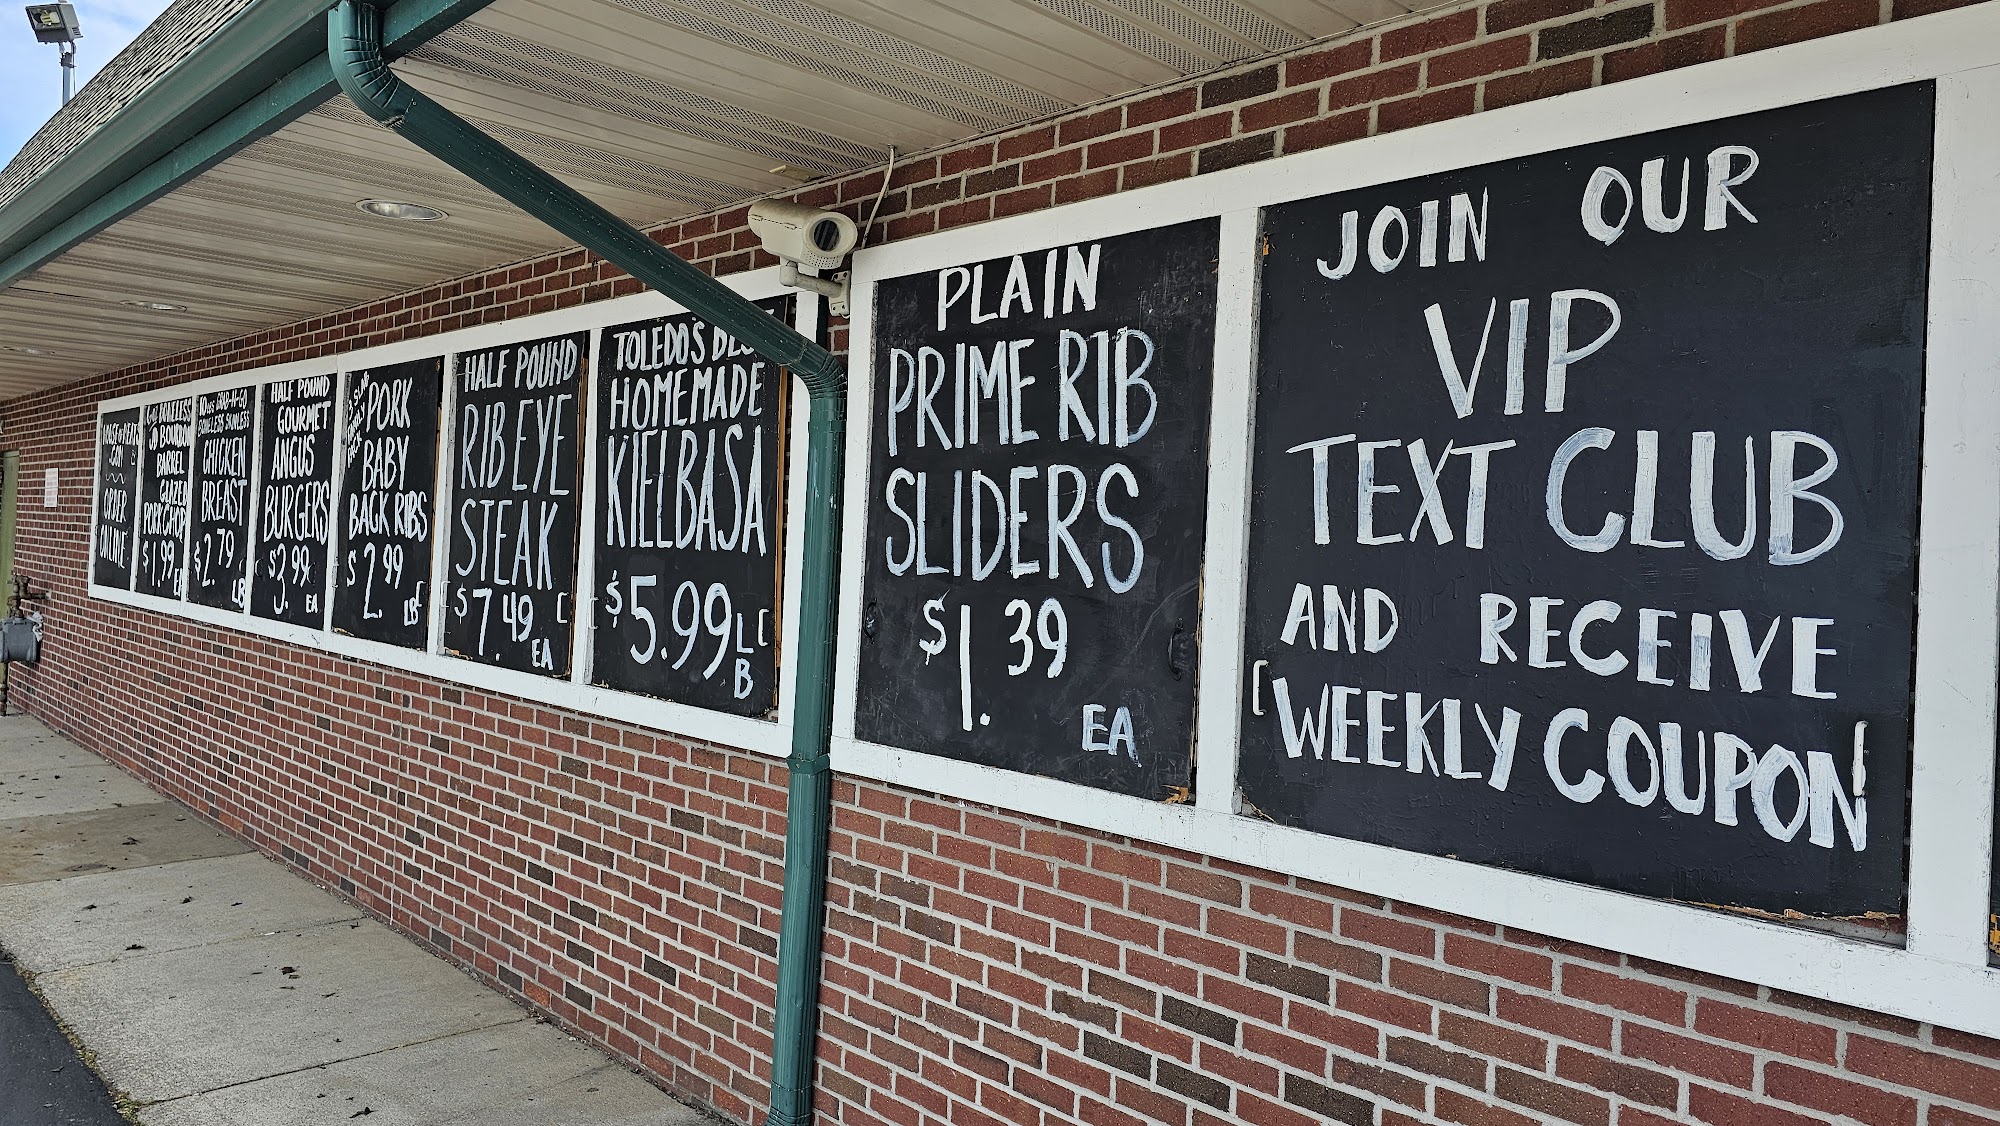 .COM
ORDER
ONLINE
BONELESS
BOURBON
BARREL
GLAZED
PORK CHOP
$1.99 EA
GRAB-N-GO
BONELESS SKINLESS
CHICKEN
BREAST
$2.79 LB
HALF POUND
GOURMET
ANGUS
BURGERS
$3.99 EA
PORK
BABY
BACK RIBS
$2.99 LB
HALF POUND
RIB EYE
STEAK
$7.49 EA
TOLEDO'S
HOMEMADE
KIELBASA
$5.99 LB
PLAIN
PRIME RIB
SLIDERS
$1.39
EA
JOIN OUR
VIP
TEXT CLUB
AND RECEIVE
WEEKLY COUPON